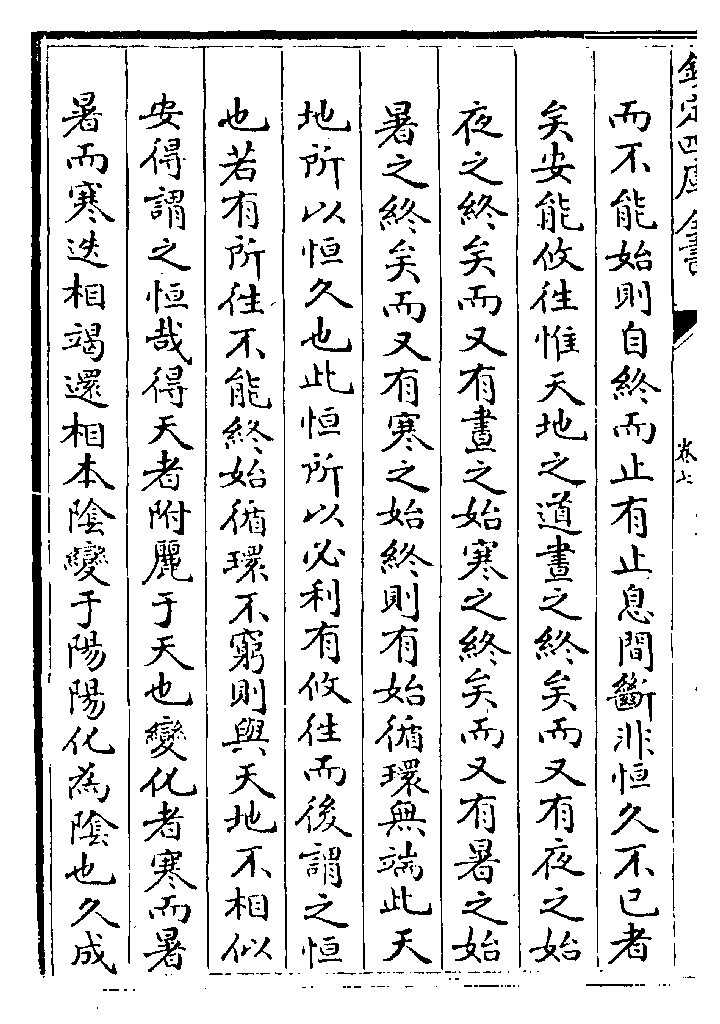 欽定四庫全書
卷七
而不能始則自終而止有止息間斷非恒久不已者
矣安能攸往惟天地之道晝之終矣而又有夜之始
夜之終矣而又有晝之始寒之終矣而又有暑之始
暑之終矣而又有寒之始終則有始循環無端此天
地所以恒久也此恒所以必利有攸往而後謂之恒
也若有所往不能終始循環不窮則與天地不相似
安得謂之恒哉得天者附麗于天也變化者寒而暑
暑而寒迭相竭還相本陰變于陽陽化為陰也久成